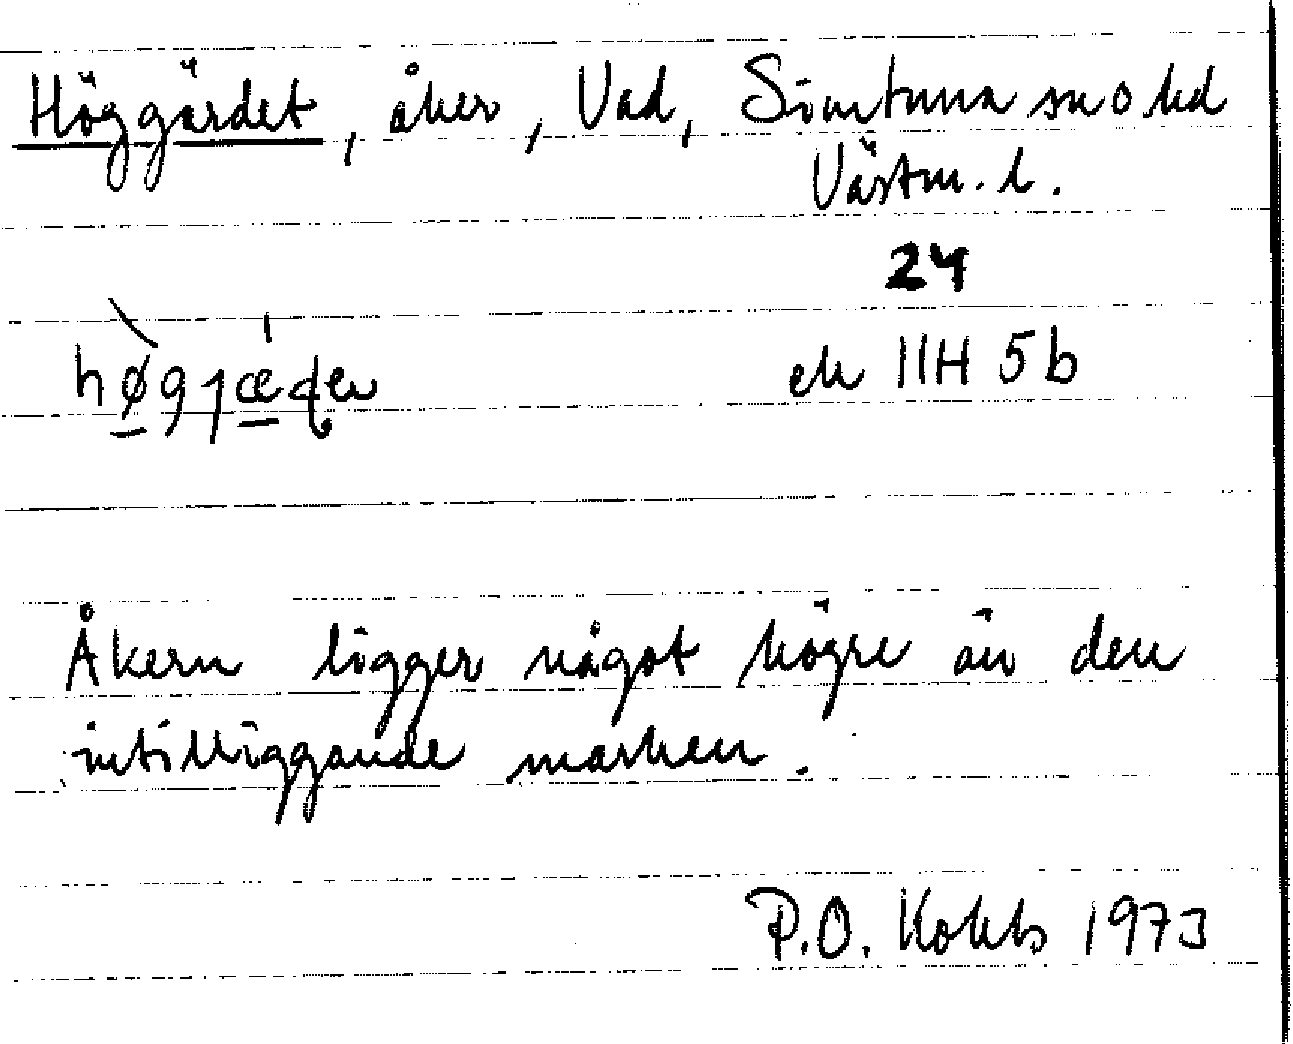 Höggärdet, åker, Vad, Simtuna sn o hd
Västm. l.
24
ek 11H 5b
Åkern ligger något högre än den
intilliggande marken.
P.O. 1973